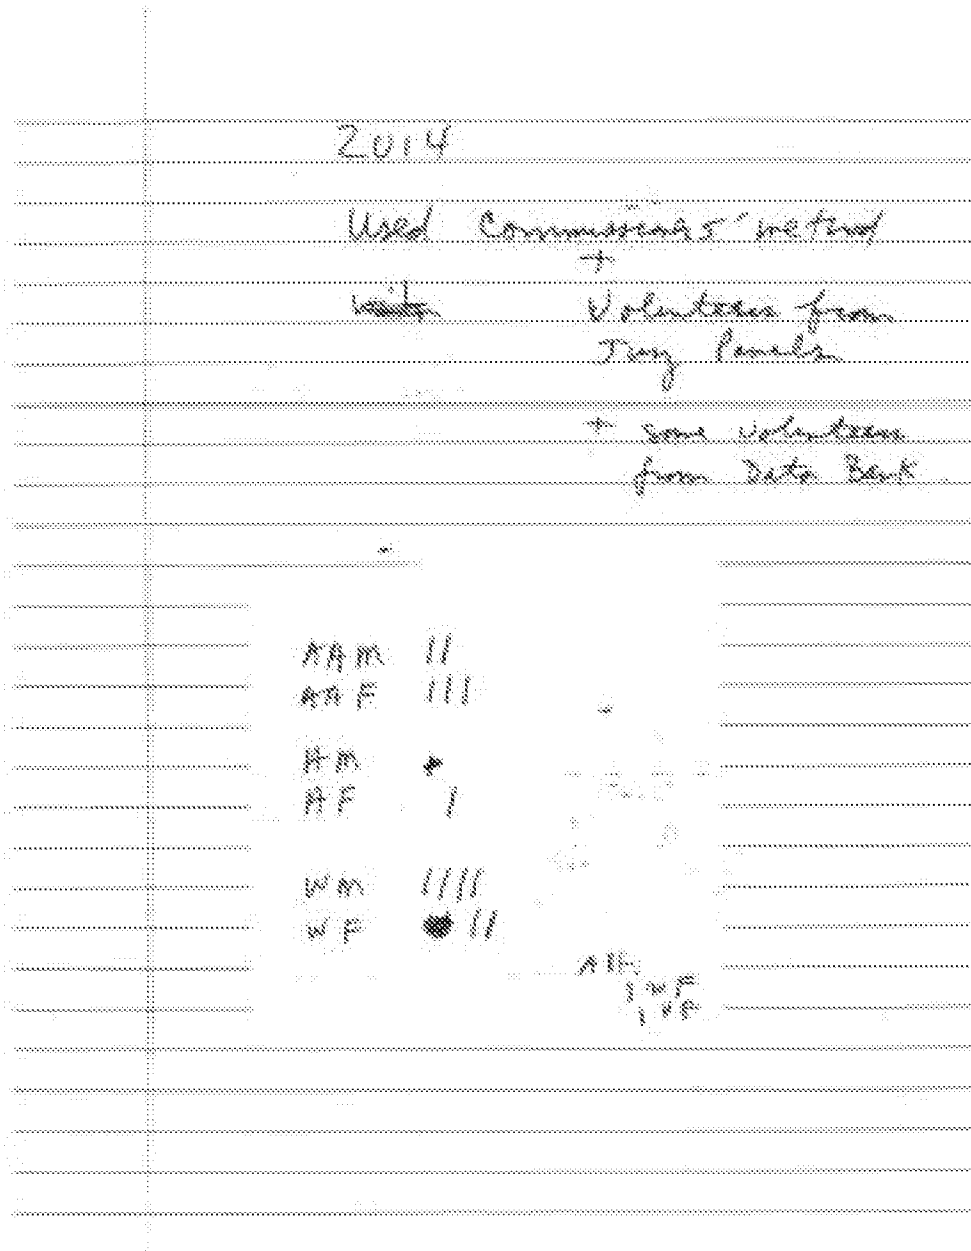 2014
Used Commissioners' method
+
Volunteers from
Jury Panels
+ some volunteers
from Data Bank
AAM 11
AAF 111
HM
AF 1
WM 1111
WF 11
Alt.
1 WF